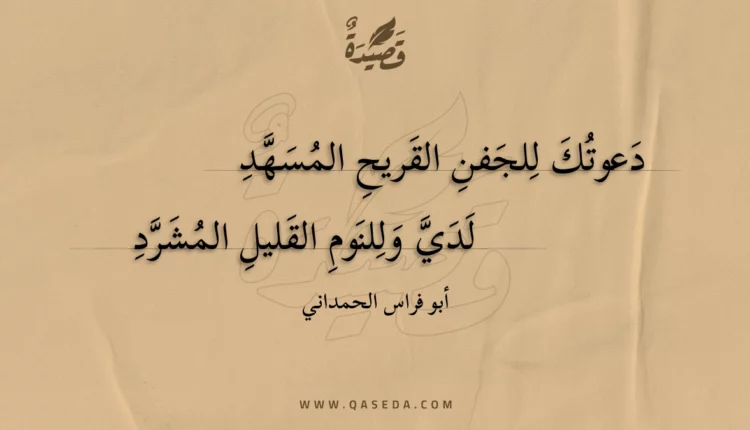 قَصِيْدَةٌ
دَعوتُكَ لِلجَفنِ القَريحِ المُسَهَّدِ
لَدَيَّ وَلِلنَومِ القَليلِ المُشَرَّدِ
أبو فراس الحمداني
WWW.QASEDA.COM